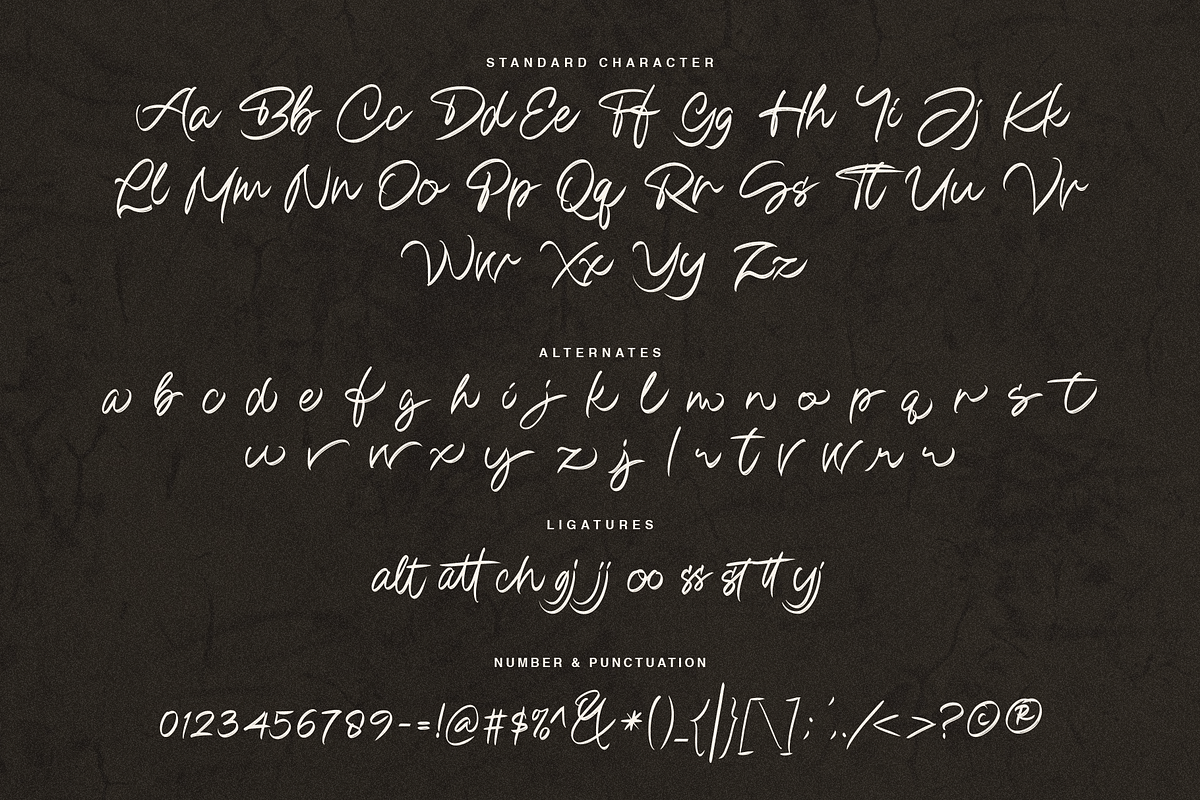 STANDARD CHARACTER
Aa Bb Cc Dd Ee Ff Gg Hh Ii Jj Kk
Ll Mm Nn Oo Pp Qq Rr Ss Tt Uu Vv
Ww Xx Yy Zz
ALTERNATES
a b c d e f g h i j k l m n o p q r s t
u v w x y z j l r t v w r r
LIGATURES
alt att ch gj jj oo ss st tt yj
NUMBER & PUNCTUATION
0123456789-=!@#$%^&*()_{|}[\];:',./<>?©®